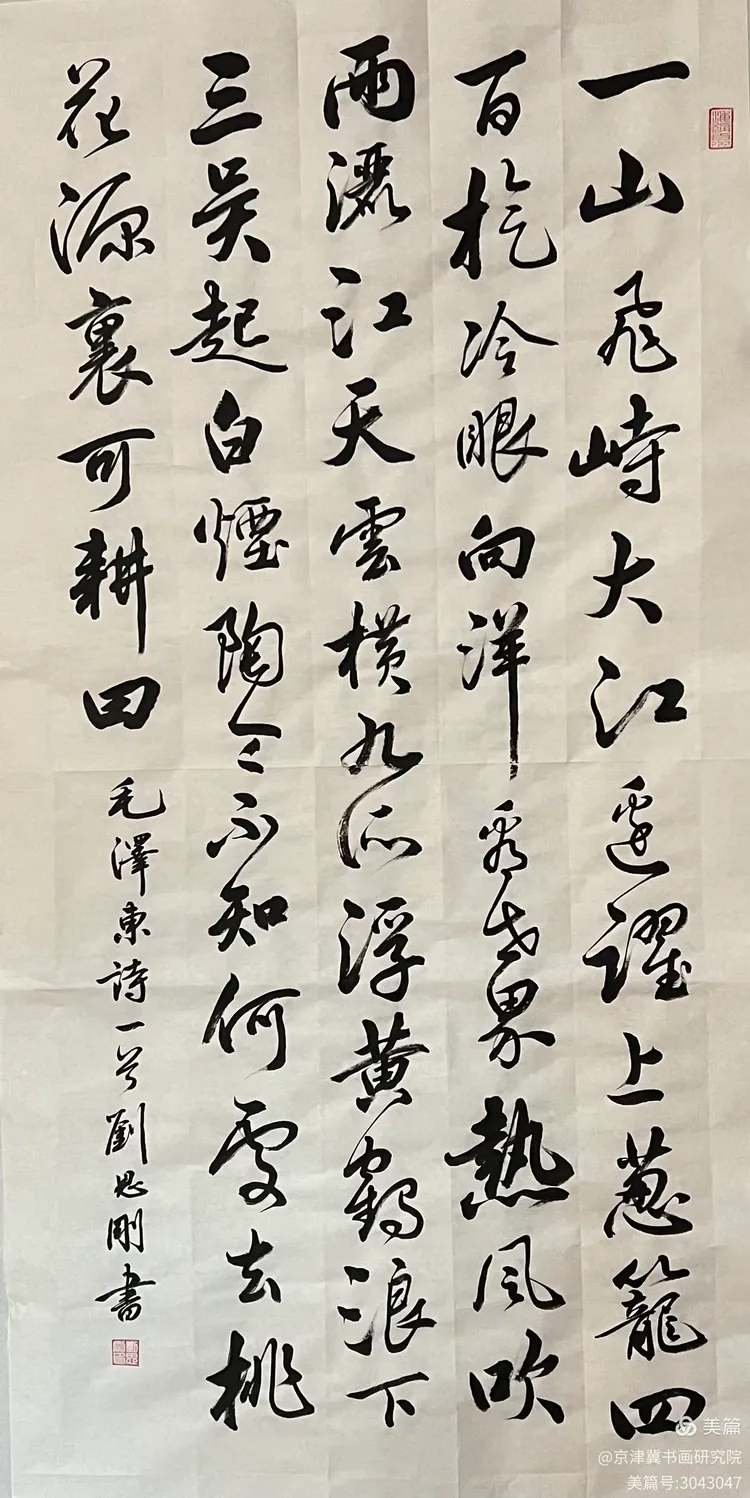 一山飛峙大江邊躍上葱籠四
百旋冷眼向洋看世界熱風吹
雨灑江天雲橫九派浮黄鶴浪下
三吴起白煙陶令不知何處去桃
花源裏可耕田
毛澤東詩一首劉思剛書
美篇
@京津冀书画研究院
美篇号:3043047